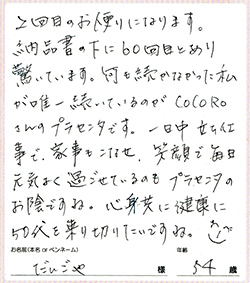 2回目のお便りになります。
納品書の下に60回目とあり
驚いています。何も続かなかった私
が唯一続いているのがCOCORO
さんのプラセンタです。一日中立ち仕
事で、家事もこなせ、笑顔で毎日
元気よく過ごせているのもプラセンタの
お陰ですね。心身共に健康に
50代を乗り切りたいですね。
お名前(本名 or ペンネーム) 年齢
だいごや 様 54 歳